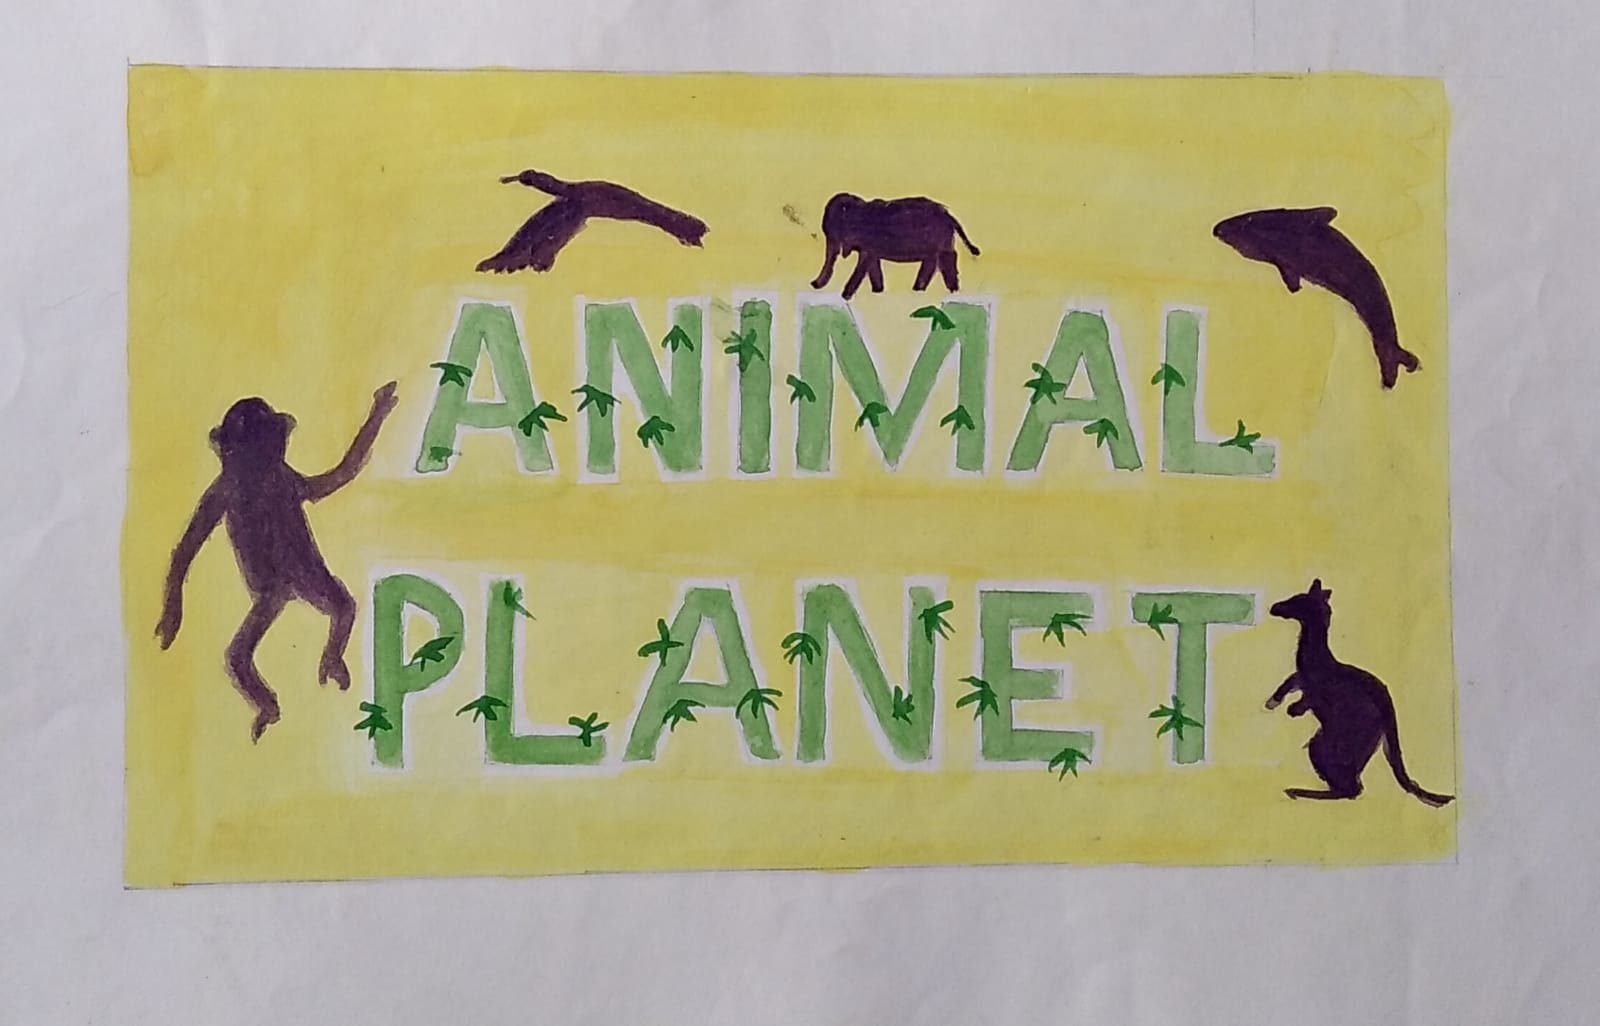 ANIMAL
PLANET